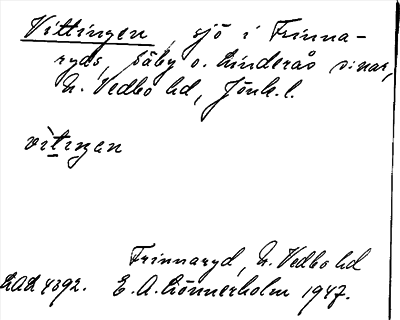 Vittingen, sjö i Frinna-
ryds, Säby o. Linderås s:nar,
N. Vedbo hd, Jönk. l.
vìtiŋən
Frinnaryd, N. Vedbo hd
4392. E. A. Lönnerholm 1947.